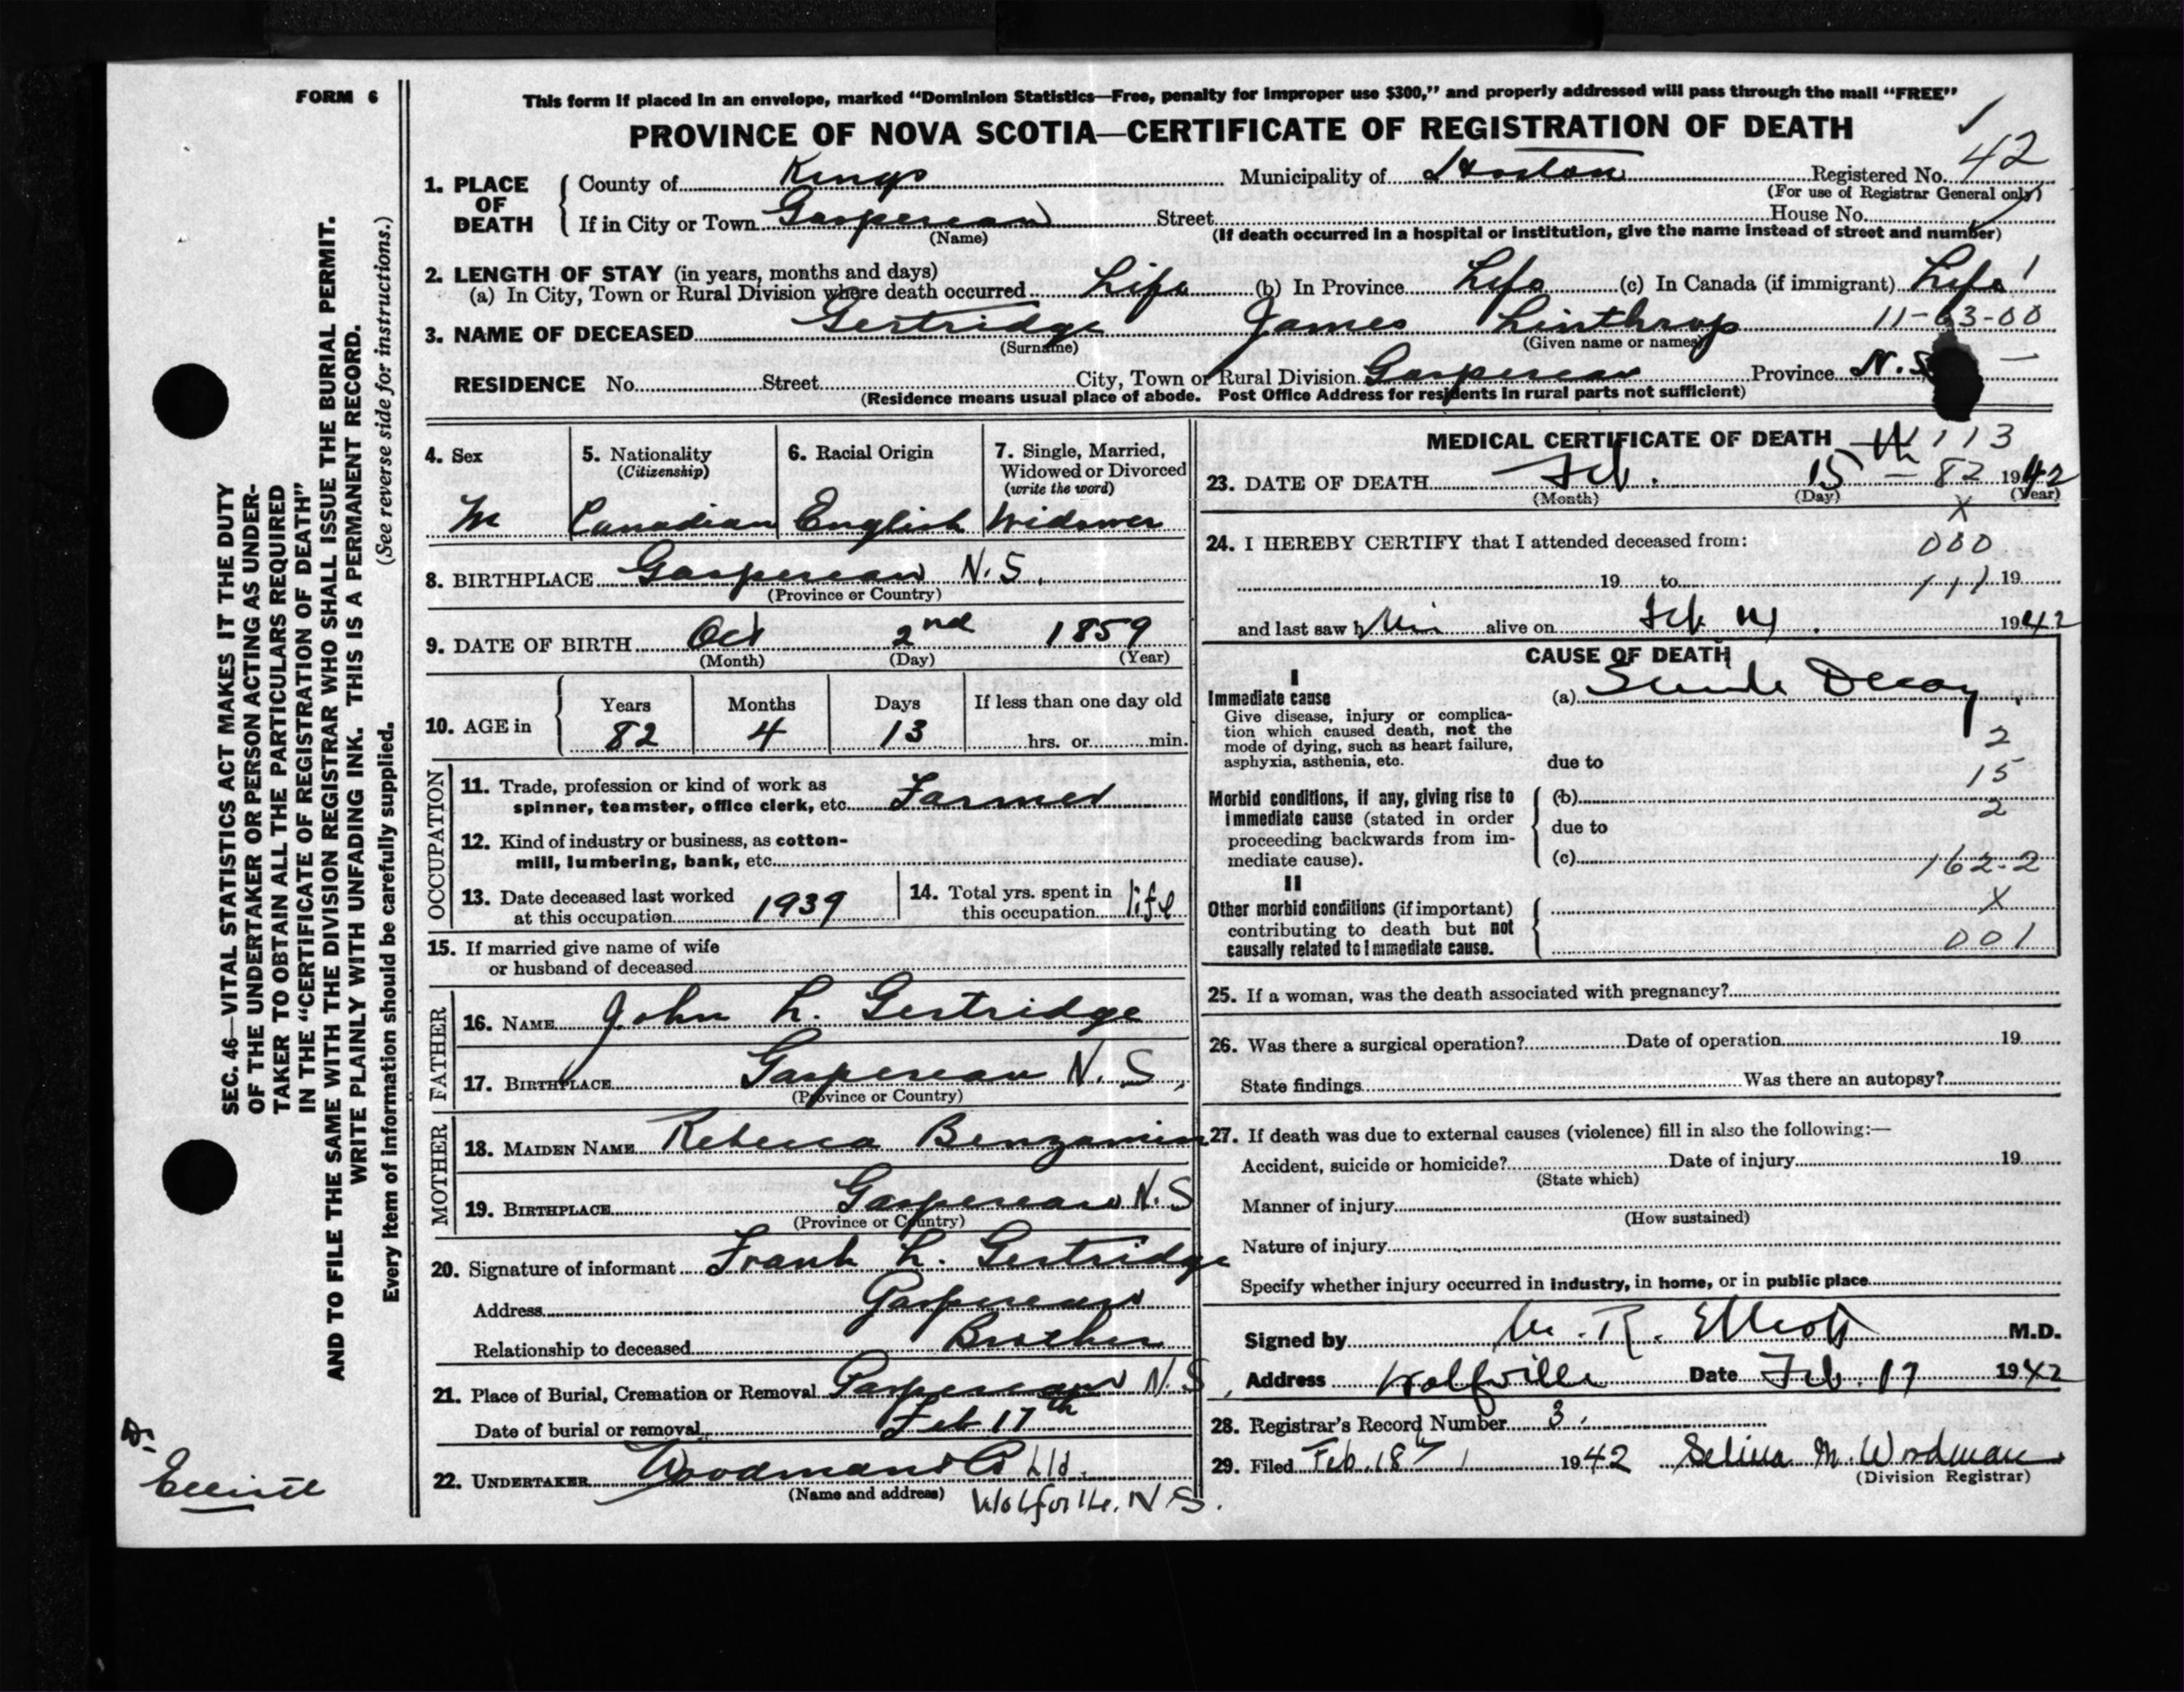 FORM 6
This form if placed in an envelope, marked "Dominion Statistics—Free, penalty for improper use $300," and properly addressed will pass through the mail "FREE"
PROVINCE OF NOVA SCOTIA—CERTIFICATE OF REGISTRATION OF DEATH
1. PLACE OF DEATH County of Kings Municipality of Horton Registered No. 42
(For use of Registrar General only)
If in City or Town Gaspereau Street House No.
(Name) (If death occurred in a hospital or institution, give the name instead of street and number)
2. LENGTH OF STAY (in years, months and days)
(a) In City, Town or Rural Division where death occurred Life (b) In Province Life (c) In Canada (if immigrant) Life
3. NAME OF DECEASED Gertridge James Linthrop 11-63-00
(Surname) (Given name or names)
RESIDENCE No. Street City, Town or Rural Division Gaspereau Province N.S.
(Residence means usual place of abode. Post Office Address for residents in rural parts not sufficient)
4. Sex 5. Nationality (Citizenship) 6. Racial Origin 7. Single, Married, Widowed or Divorced (write the word)
M Canadian English Widower
8. BIRTHPLACE Gaspereau N.S.
(Province or Country)
9. DATE OF BIRTH Oct 2nd 1859
(Month) (Day) (Year)
10. AGE in Years Months Days If less than one day old
82 4 13 hrs. or min.
OCCUPATION
11. Trade, profession or kind of work as
spinner, teamster, office clerk, etc. Farmer
12. Kind of industry or business, as cotton-
mill, lumbering, bank, etc.
13. Date deceased last worked
at this occupation 1939
14. Total yrs. spent in
this occupation life
15. If married give name of wife
or husband of deceased
FATHER
16. NAME John L. Gertridge
17. BIRTHPLACE Gaspereau N.S.
(Province or Country)
MOTHER
18. MAIDEN NAME Rebecca Benjamin
19. BIRTHPLACE Gaspereau N.S
(Province or Country)
20. Signature of informant Frank L. Gertridge
Address Gaspereau
Relationship to deceased Brother
21. Place of Burial, Cremation or Removal Gaspereau N.S.
Date of burial or removal Feb 17th
22. UNDERTAKER Woodmans Co Ltd.
(Name and address) Wolfville, N.S.
MEDICAL CERTIFICATE OF DEATH 113
23. DATE OF DEATH Feb. 15 82 1942
(Month) (Day) (Year)
X
24. I HEREBY CERTIFY that I attended deceased from: 000
19 to 111 19
and last saw h him alive on Feb 14. 1942
CAUSE OF DEATH
I
Immediate cause (a) Senile Decay
Give disease, injury or complica-
tion which caused death, not the
mode of dying, such as heart failure, 2
asphyxia, asthenia, etc. due to
15
Morbid conditions, if any, giving rise to (b)
immediate cause (stated in order due to 2
proceeding backwards from im-
mediate cause). (c) 162.2
II
Other morbid conditions (if important) X
contributing to death but not
causally related to immediate cause. 001
25. If a woman, was the death associated with pregnancy?
26. Was there a surgical operation? Date of operation 19
State findings Was there an autopsy?
27. If death was due to external causes (violence) fill in also the following:—
Accident, suicide or homicide? Date of injury 19
(State which)
Manner of injury
(How sustained)
Nature of injury
Specify whether injury occurred in industry, in home, or in public place
Signed by M. R. Elliott M.D.
Address Wolfville Date Feb. 17 1942
28. Registrar's Record Number 3.
29. Filed Feb. 18th 1942 Selina M. Woodman
(Division Registrar)
SEC. 46—VITAL STATISTICS ACT MAKES IT THE DUTY
OF THE UNDERTAKER OR PERSON ACTING AS UNDER-
TAKER TO OBTAIN ALL THE PARTICULARS REQUIRED
IN THE "CERTIFICATE OF REGISTRATION OF DEATH"
AND TO FILE THE SAME WITH THE DIVISION REGISTRAR WHO SHALL ISSUE THE BURIAL PERMIT.
WRITE PLAINLY WITH UNFADING INK. THIS IS A PERMANENT RECORD.
Every item of information should be carefully supplied. (See reverse side for instructions.)
Dr
Elliott